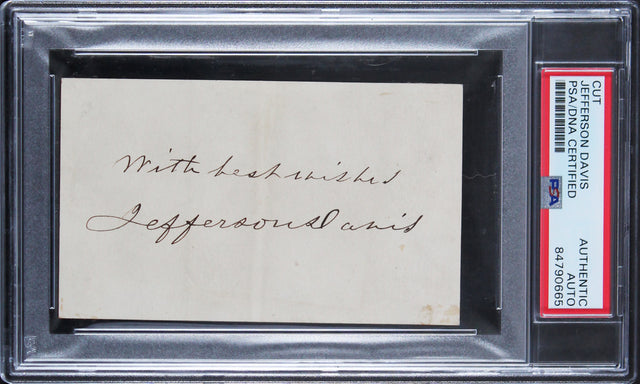 With best wishes
Jefferson Davis
CUT
JEFFERSON DAVIS
PSA/DNA CERTIFIED
PSA
AUTHENTIC
AUTO
84790665